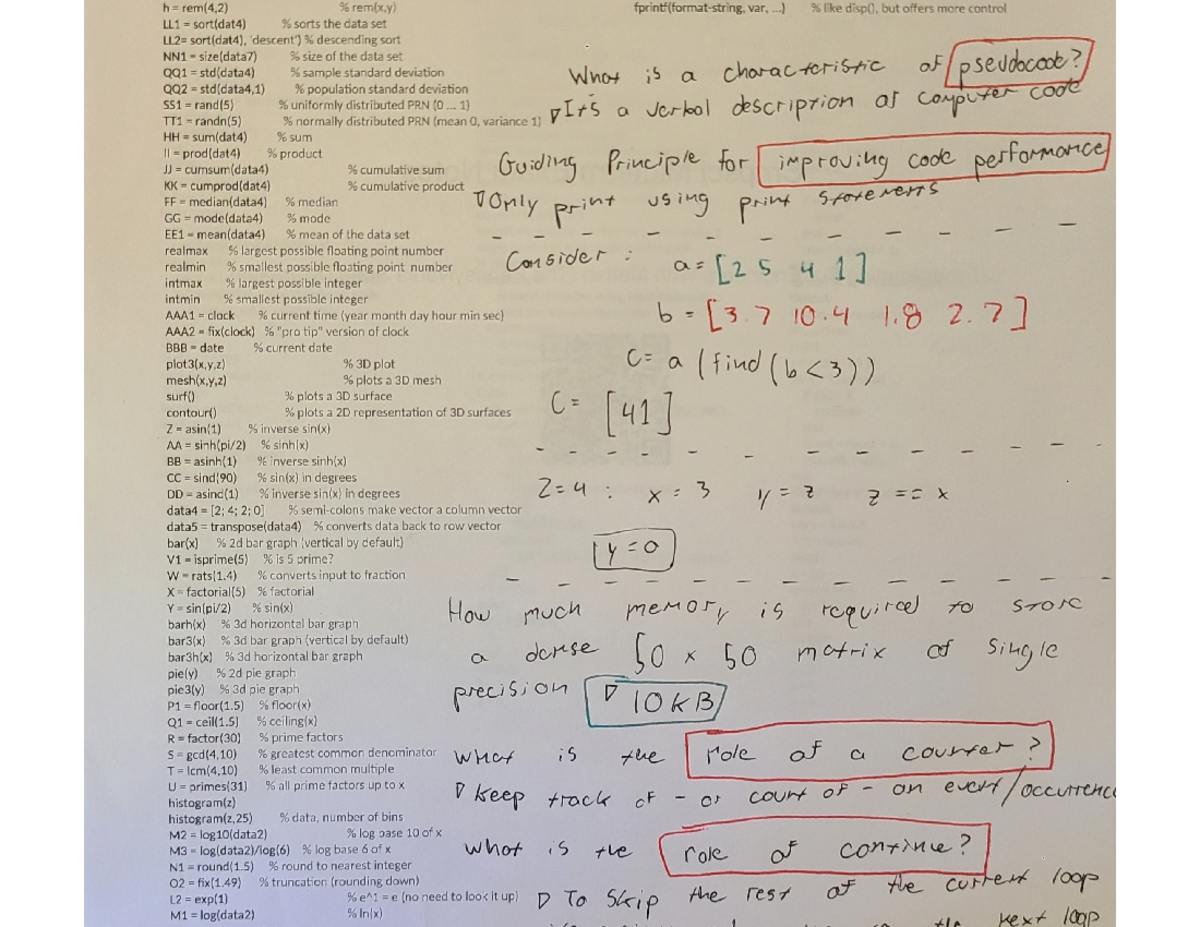 h = rem(4,2) % rem(x,y)
LL1 = sort(dat4) % sorts the data set
LL2= sort(dat4), 'descent') % descending sort
NN1 = size(data7) % size of the data set
QQ1 = std(data4) % sample standard deviation
QQ2 = std(data4,1) % population standard deviation
SS1 = rand(5) % uniformly distributed PRN (0 ... 1)
TT1 = randn(5) % normally distributed PRN (mean 0, variance 1)
HH = sum(dat4) % sum
II = prod(dat4) % product
JJ = cumsum(data4) % cumulative sum
KK = cumprod(dat4) % cumulative product
FF = median(data4) % median
GG = mode(data4) % mode
EE1 = mean(data4) % mean of the data set
realmax % largest possible floating point number
realmin % smallest possible floating point number
intmax % largest possible integer
intmin % smallest possible integer
AAA1 = clock % current time (year month day hour min sec)
AAA2 = fix(clock) % "pro tip" version of clock
BBB = date % current date
plot3(x,y,z) % 3D plot
mesh(x,y,z) % plots a 3D mesh
surf() % plots a 3D surface
contour() % plots a 2D representation of 3D surfaces
Z = asin(1) % inverse sin(x)
AA = sinh(pi/2) % sinh(x)
BB = asinh(1) % inverse sinh(x)
CC = sind(90) % sin(x) in degrees
DD = asind(1) % inverse sin(x) in degrees
data4 = [2; 4; 2; 0] % semi-colons make vector a column vector
data5 = transpose(data4) % converts data back to row vector
bar(x) % 2d bar graph (vertical by default)
V1 = isprime(5) % is 5 prime?
W = rats(1.4) % converts input to fraction
X = factorial(5) % factorial
Y = sin(pi/2) % sin(x)
barh(x) % 3d horizontal bar graph
bar3(x) % 3d bar graph (vertical by default)
bar3h(x) % 3d horizontal bar graph
pie(y) % 2d pie graph
pie3(y) % 3d pie graph
P1 = floor(1.5) % floor(x)
Q1 = ceil(1.5) % ceiling(x)
R = factor(30) % prime factors
S = gcd(4,10) % greatest common denominator
T = lcm(4,10) % least common multiple
U = primes(31) % all prime factors up to x
histogram(z)
histogram(z,25) % data, number of bins
M2 = log10(data2) % log base 10 of x
M3 = log(data2)/log(6) % log base 6 of x
N1 = round(1.5) % round to nearest integer
O2 = fix(1.49) % truncation (rounding down)
L2 = exp(1) % e^1 = e (no need to look it up)
M1 = log(data2) % ln(x)
fprintf(format-string, var, ...) % like disp(), but offers more control
What is a characteristic of pseudocode?
▽ It's a verbal description of computer code
Guiding Principle for improving code performance
▽ Only print using print statements
Consider : a = [2 5 4 1]
b = [3.7 10.4 1.8 2.7]
C = a (find (b < 3))
C = [4 1]
Z = 4 : x = 3 y = z z == x
y = 0
How much memory is required to store
a dense 50 x 50 matrix of single
precision ▽ 10 kB
What is the role of a counter?
▽ Keep track of - or count of - an event/occurrence
What is the role of continue?
▽ To skip the rest of the current loop
the next loop